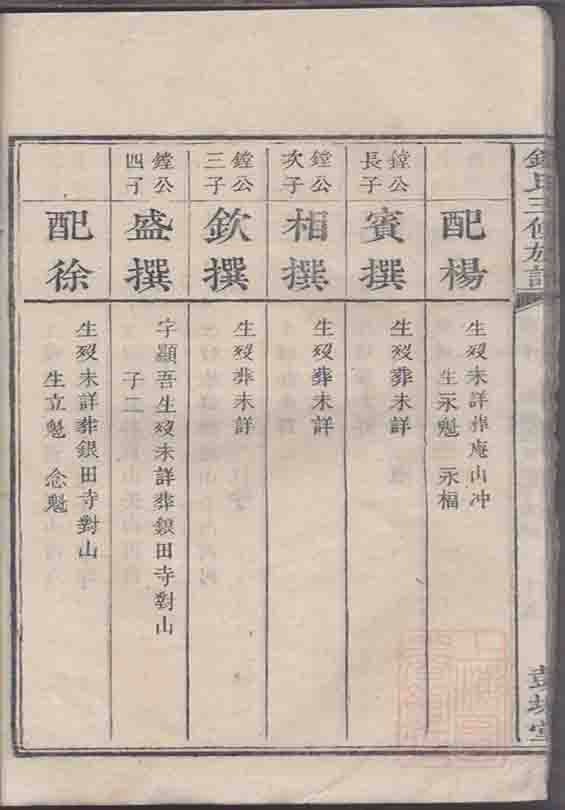 配楊
生歿未詳葬庵山冲
生永魁 永福
鏜公
長子
賓撰
生歿葬未詳
鏜公
次子
相撰
生歿葬未詳
鏜公
三子
欽撰
生歿葬未詳
鏜公
四子
盛撰
字顯吾生歿未詳葬銀田寺對山
子二
配徐
生歿未詳葬銀田寺對山
生立魁 念魁